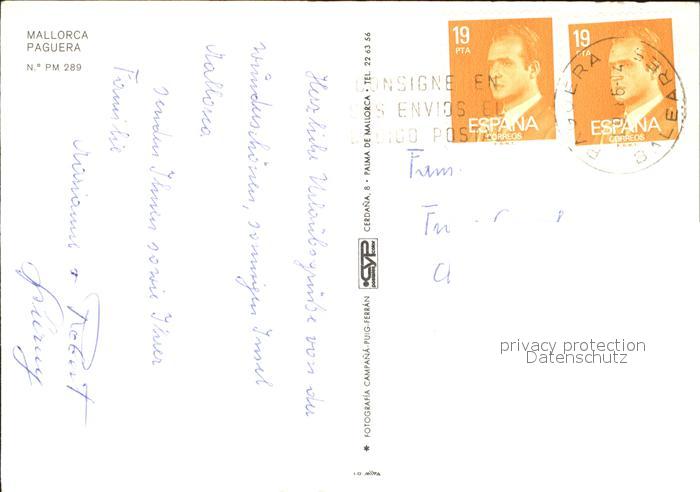 MALLORCA
PAGUERA
N.º PM 289
Herzliche Urlaubsgrüße von der
wunderschönen, sonnigen Insel
Mallorca
senden Ihnen sowie Ihrer
Familie
Marianne + Robert
* FOTOGRAFÍA CAMPAÑÁ-PUIG-FERRÁN
CYP
CERDAÑA, 8 • PALMA DE MALLORCA • TEL. 22 63 56
19
PTA
ESPAÑA
CORREOS
19
PTA
ESPAÑA
CORREOS
CONSIGNE EN
SUS ENVIOS EL
CODIGO POSTAL
PAGUERA
BALEARES
Fam.
privacy protection
Datenschutz